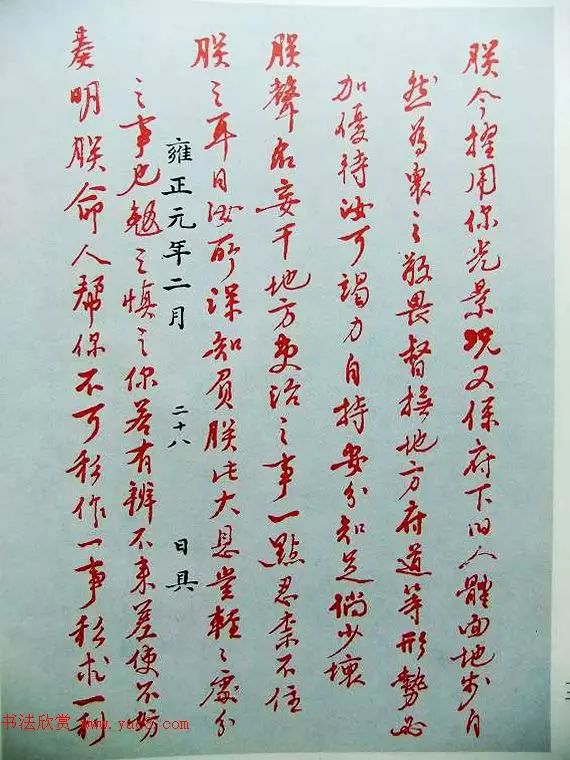 朕今擢用你光景況又係府下旧人體面地步自
然為衆之敬畏督撫地方府道等形勢必
加優待汝可竭力自持安分知足倘少壞
朕聲名妄干地方吏治之事一點忍柰不住
朕之耳目汝所深知負朕此大恩豈輕々處分
雍正元年二月 二十八 日具
之事也勉之慎之你若有辦不来差使不妨
奏明朕命人幫你不可私作一事私求一利
书法欣赏 www.yac8.com